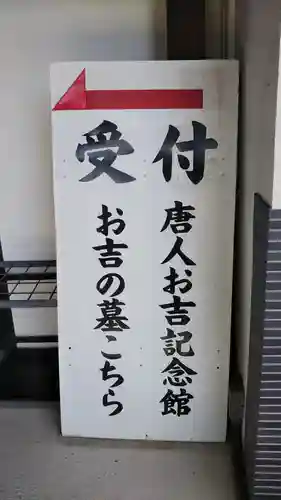 受付
唐人お吉記念館
お吉の墓こちら